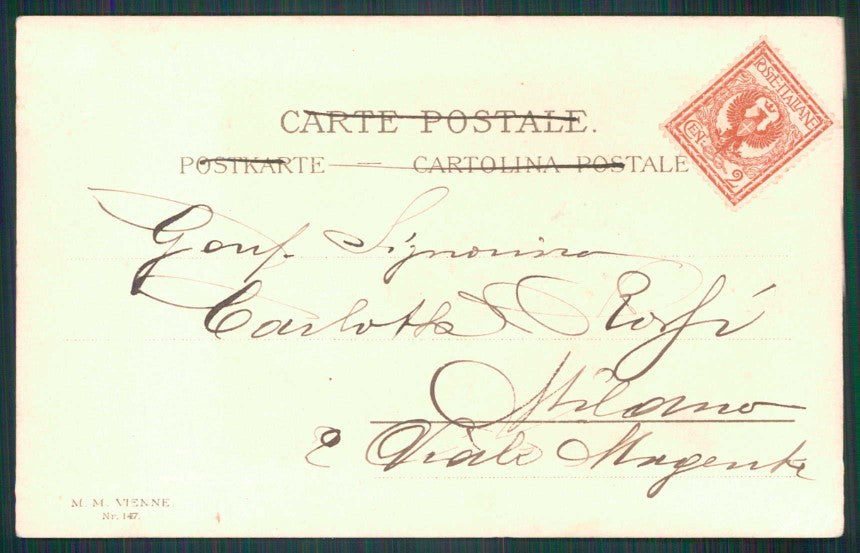 CARTE POSTALE.
POSTKARTE — CARTOLINA POSTALE
POSTE·ITALIANE
CENT. 2
Signorina
Carlotta Rossi
Milano
2 Viale Magenta
M. M. VIENNE
Nr. 147.